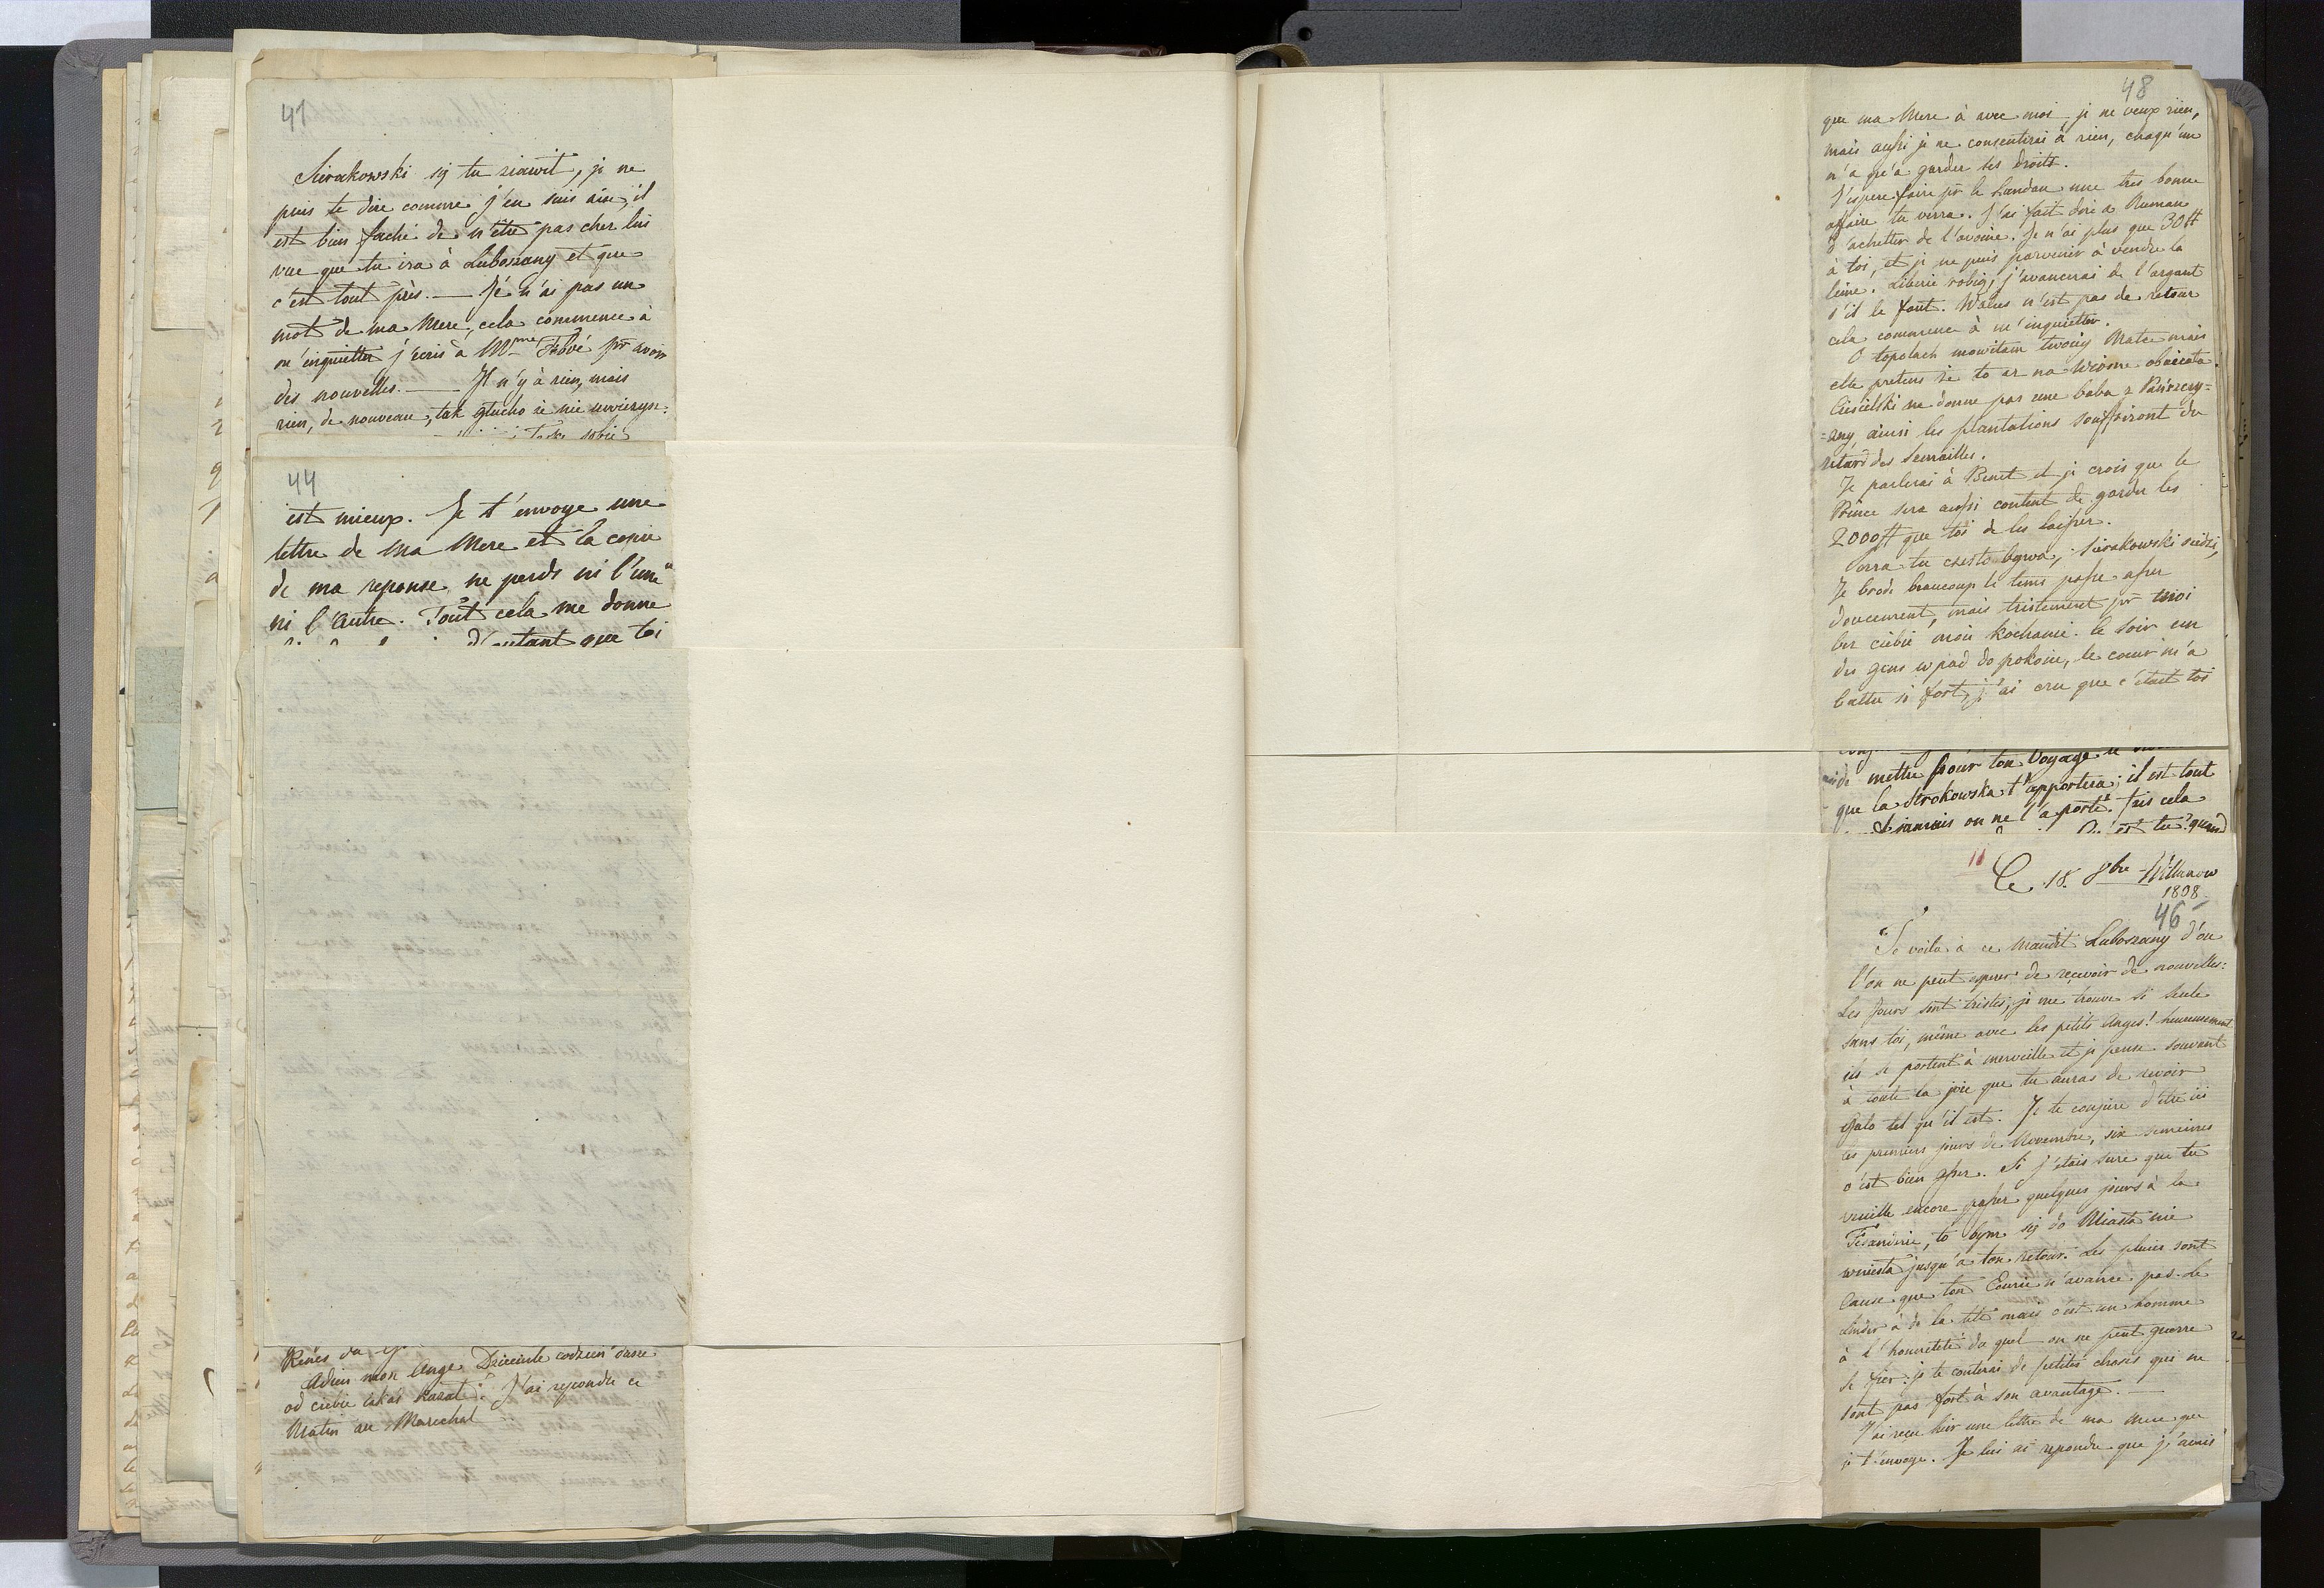 41
Sierakowski się tu ziawił, je ne
puis te dire comme j'en suis aise, il
est bien faché de n'être pas cher lui
vue que tu ira à Luboszany et que
c'est tout près. — Je n'ai pas un
mot de ma Mere, cela commence à
m'inquietter j'ecris à Mme pr avoir
des nouvelles. — Il n'y à rien, mais
rien, de nouveau, tak głucho że nie uwierzysz.
44
est mieux. Je t'envoye une
lettre de Ma Mere et la copie
de ma reponse, ne perds ni l'une
ni l'autre. Tout cela me donne
d'autant que toi
Adieu mon Ange Dziecinle codzien
od ciebie kazał. J'ai repondu ce
Matin au Marechal
48
que ma Mere à avec moi, je ne veux rien,
mais aussi je ne consentirai à rien, chaqu'un
n'a qu'a garder ses droits.
J'espere faire pr le Landau une tres bonne
affaire tu verra. J'ai fait dire a Roman
d'achetter de l'avoine. Je n'ai plus que 30#
à toi, et je ne puis parvenir à vendre la
leine. robię, j'avancerai de l'argent
s'il le faut. n'est pas de retour
cela commence à m'inquietter.
O topolach mowiłam twoiey Matce mais
elle pretens że to az na Wiosne obiecała.
Ciesielski ne donne pas une baba z
any, ainsi les plantations souffriront du
retard des semailles.
Je parlerai à Benet et je crois que le
Prince sera aussi content de garder les
2000# que toi de les laisser.
tu często bywa, Sierakowski siedzi,
Je brode beaucoup le tems passe assez
doucement, mais tristement pr moi
bez ciebie moie kochanie. le soir un
des gens wpad do pokoiu, le cœur m'a
battu si fort, j'ai cru que c'était toi
mettre pour ton Voyage
que la Strokowska t'apportera; il est tout
jamais on ne l'a porté.
Le 18. 8bre Willanow
1808.
46
Te voila à ce maudit Luboszany d'ou
l'on ne peut esperer de reçevoir de nouvelles:
Les Jours sont tristes, je me trouve si seule
sans toi, même avec les petits Anges! heureusement
ils se portent à merveille et je pense souvent
à toute la joie que tu auras de revoir
Gulo tel qu'il est. Je te conjure d'être ici
les premiers jours de Novembre, six semeines
c'est bien assez. Si j'étais sure que tu
veuille encore passer quelques jours à la
Fesanderie, to bym się do Miasta nie
wniesła jusqu'à ton retour. Les pluies sont
Cause que ton Ecurie n'avance pas. Le
Lindor à de la tête mais c'est un homme
à l'honneteté du quel on ne peut guerre
se fier: je te conterai de petites choses qui ne
sont pas fort à son avantage. —
J'ai reçu hier une lettre de ma Mere que
je t'envoye. Je lui ai repondu que j'avais